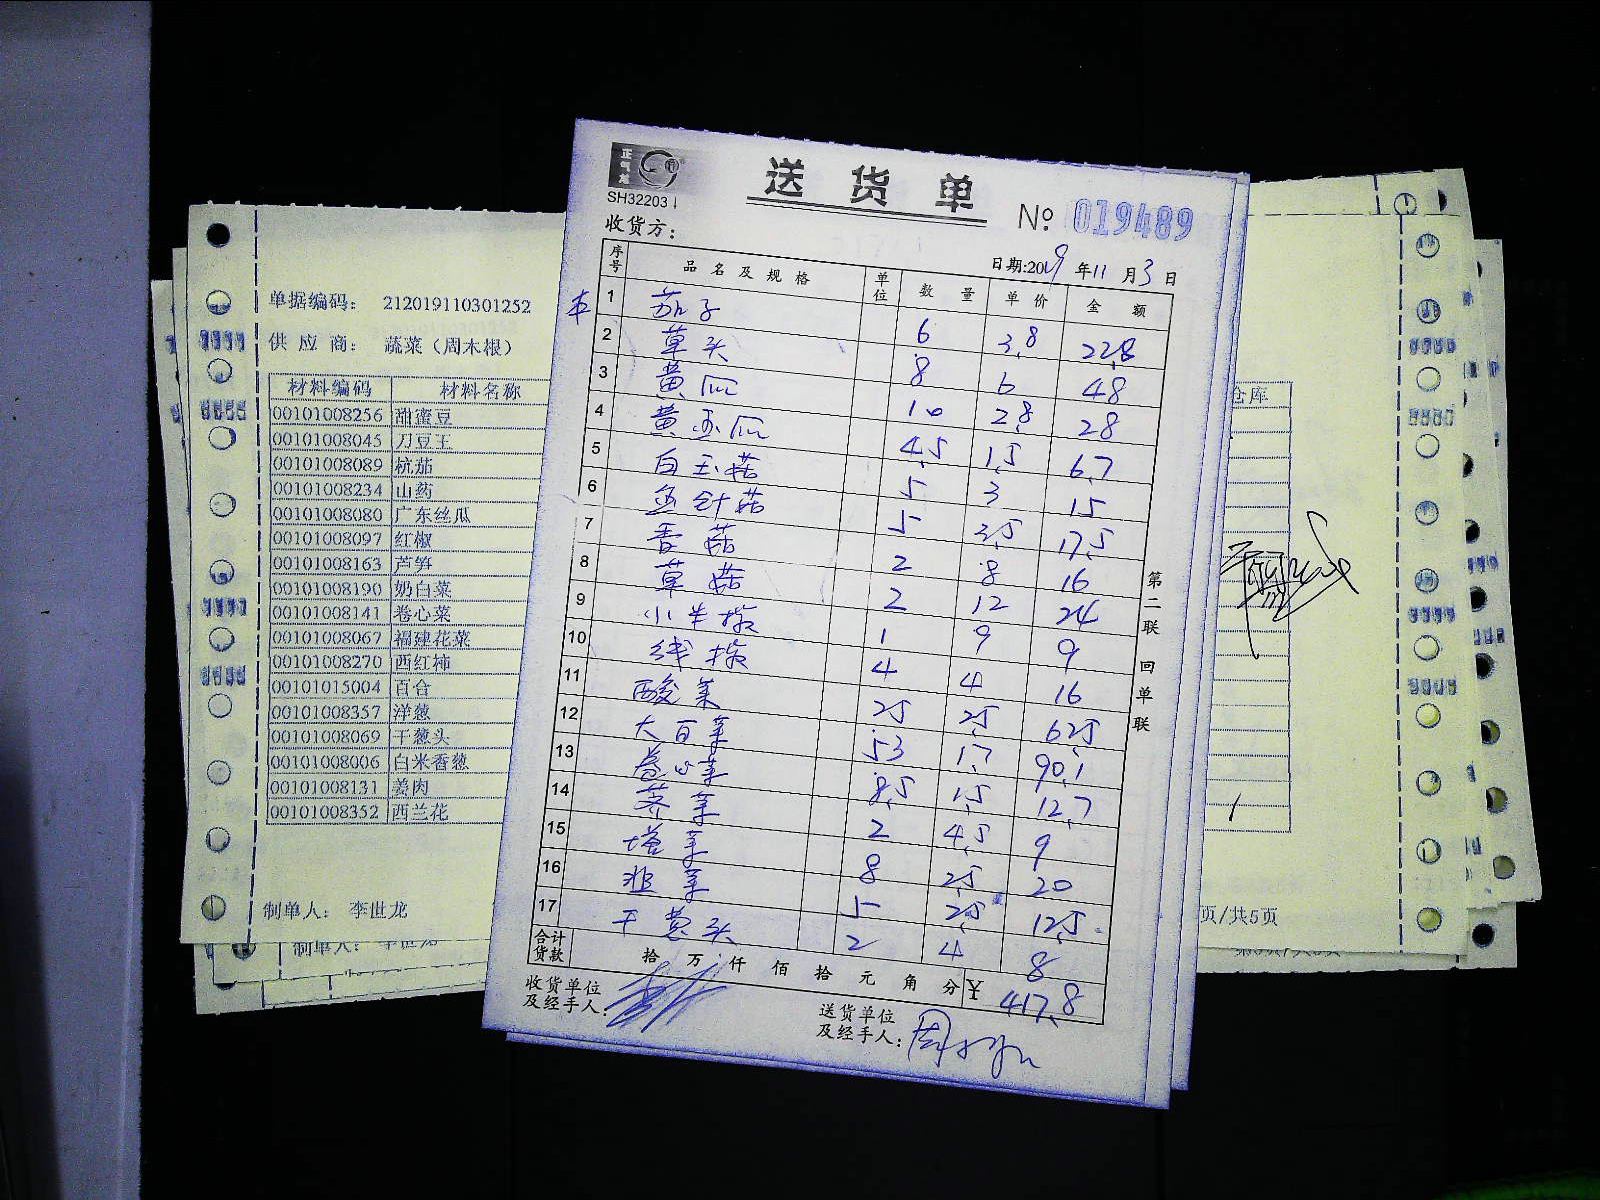 正气龙
SH32203
送货单
№ 019489
收货方：
日期:2019年11月3日
序号 品名及规格 单位 数量 单价 金额
1 茄子 6 3.8 22.8
2 草头 8 6 48
3 黄瓜 10 2.8 28
4 黄玉瓜 4.5 1.5 6.7
5 白玉菇 5 3 15
6 金针菇 5 3.5 17.5
7 香菇 2 8 16
8 草菇 2 12 24
9 小羊椒 1 9 9
10 线椒 4 4 16
11 酸菜 25 2.5 62.5
12 大白菜 53 1.7 90.1
13 卷心菜 8.5 1.5 12.7
14 荠菜 2 4.5 9
15 塔菜 8 2.5 20
16 韭菜 5 2.5 12.5
17 干黄头 2 4 8
合计货款 拾万仟佰拾元角分 ¥ 417.8
收货单位及经手人：
送货单位及经手人：
第二联 回单联
单据编码： 212019110301252
供应商： 蔬菜（周木根）
材料编码 材料名称
00101008256 甜蜜豆
00101008045 刀豆王
00101008089 杭茄
00101008234 山药
00101008080 广东丝瓜
00101008097 红椒
00101008163 芦笋
00101008190 奶白菜
00101008141 卷心菜
00101008067 福建花菜
00101008270 西红柿
00101015004 百合
00101008357 洋葱
00101008069 干葱头
00101008006 白米香葱
00101008131 姜肉
00101008352 西兰花
制单人： 李世龙
制单人： 李世龙
仓库
页/共5页